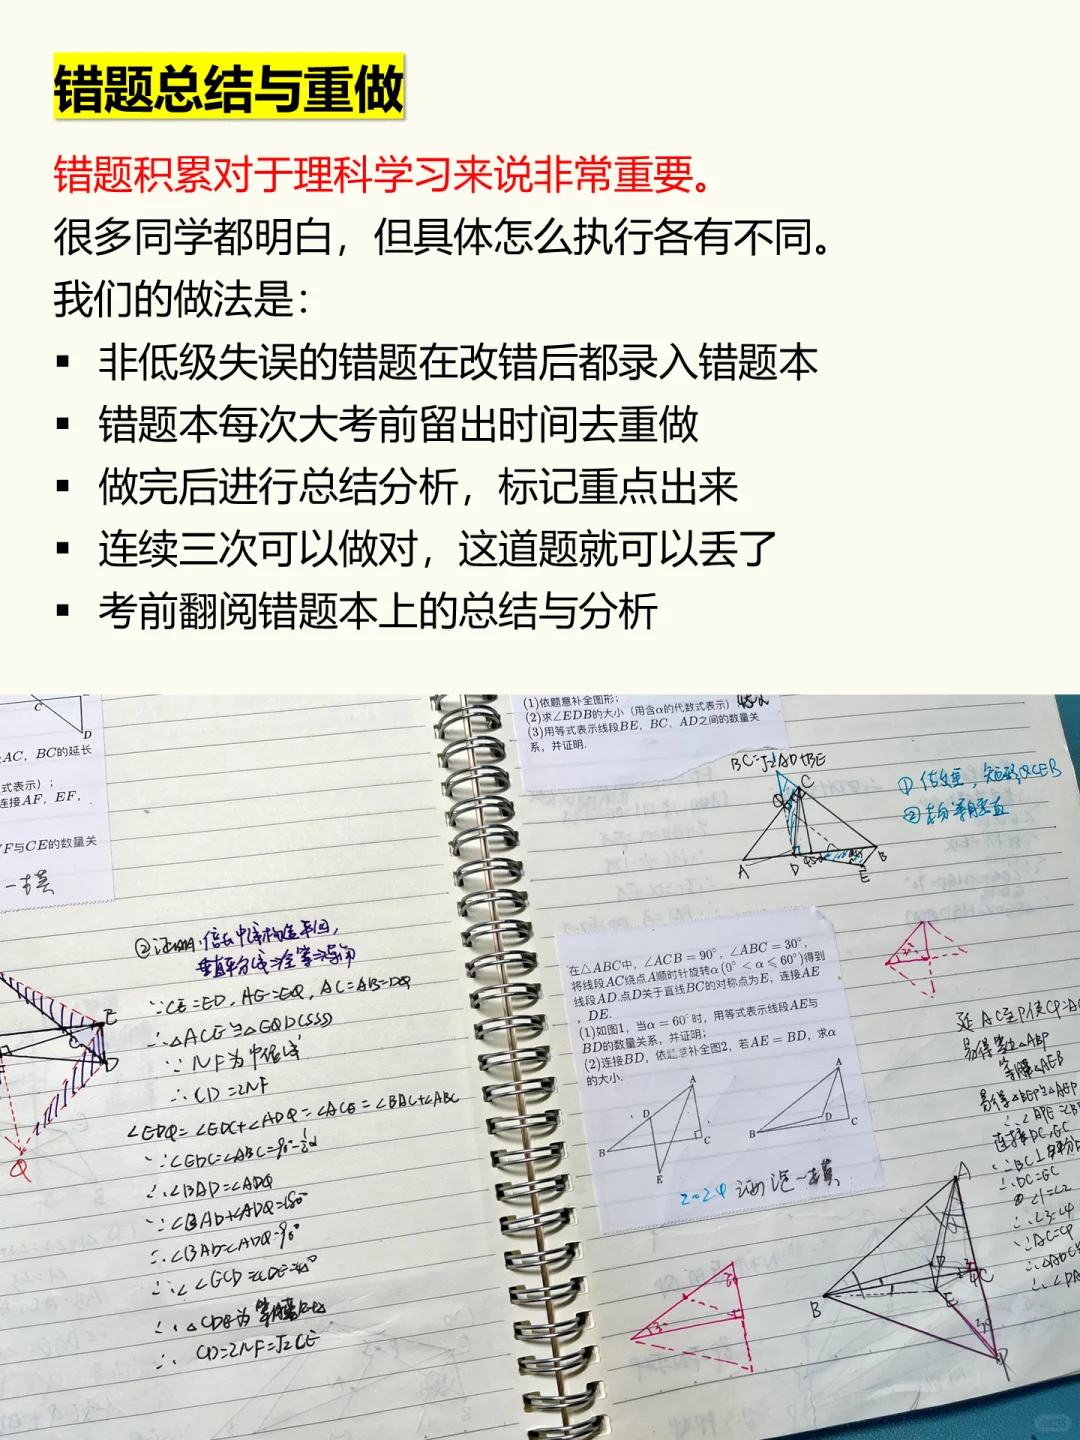 错题总结与重做
错题积累对于理科学习来说非常重要。
很多同学都明白，但具体怎么执行各有不同。
我们的做法是：
▪ 非低级失误的错题在改错后都录入错题本
▪ 错题本每次大考前留出时间去重做
▪ 做完后进行总结分析，标记重点出来
▪ 连续三次可以做对，这道题就可以丢了
▪ 考前翻阅错题本上的总结与分析
C
D
AC，BC的延长
式表示）；
连接AF，EF，
F与CE的数量关
一模
②证明：倍长中线构造平四，
垂直平分线⇒全等⇒导角
∵CE=ED，AE=EQ，AC=AB=DQ
∴△ACE≌△EQD(SSS)
∵NF为中位线
∴CD=2NF
∠EDQ=∠EDC+∠ADQ=∠ACE=∠BAC+∠ABC
∵∠EDC=∠ABC=90°-½α
∴∠BAD=∠ADQ
∵∠BAD+∠ADQ=180°
∴∠BAD=∠ADQ=90°
∴∠ECD=∠CDE=45°
∴△CDE为等腰Rt△
∴CD=2NF=√2CE
E
D
Q
(1)依题意补全图形；
(2)求∠EDB的大小（用含α的代数式表示）
(3)用等式表示线段BE，BC，AD之间的数量关
系，并证明．
BC=√2AD+BE
①作垂直，
C
Q
A
D
B
E
在△ABC中，∠ACB=90°，∠ABC=30°，
将线段AC绕点A顺时针旋转α(0°<α⩽60°)得到
线段AD.点D关于直线BC的对称点为E，连接AE
，DE.
(1)如图1，当α=60°时，用等式表示线段AE与
BD的数量关系，并证明；
(2)连接BD，依题意补全图2，若AE=BD，求α
的大小.
A
D
B
C
E
A
B
D
C
2024 一模
延AC至P使CP=AC
易得等边△ABP
等腰△AEB
易得△BEP≌△AEP
∴∠APE=∠B
连接DC，EC
∵BC⊥平分
∴DC=EC
∠1=∠2
∴∠3=∠4
∵AC=CP
∴△ADC≌
∴∠DA
A
B
C
E
P